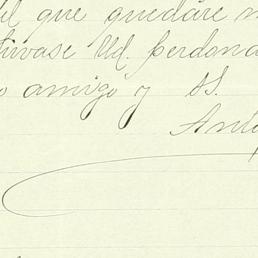 que quedáre
Sirvase Ud. perdona
amigo y SS.
Anto